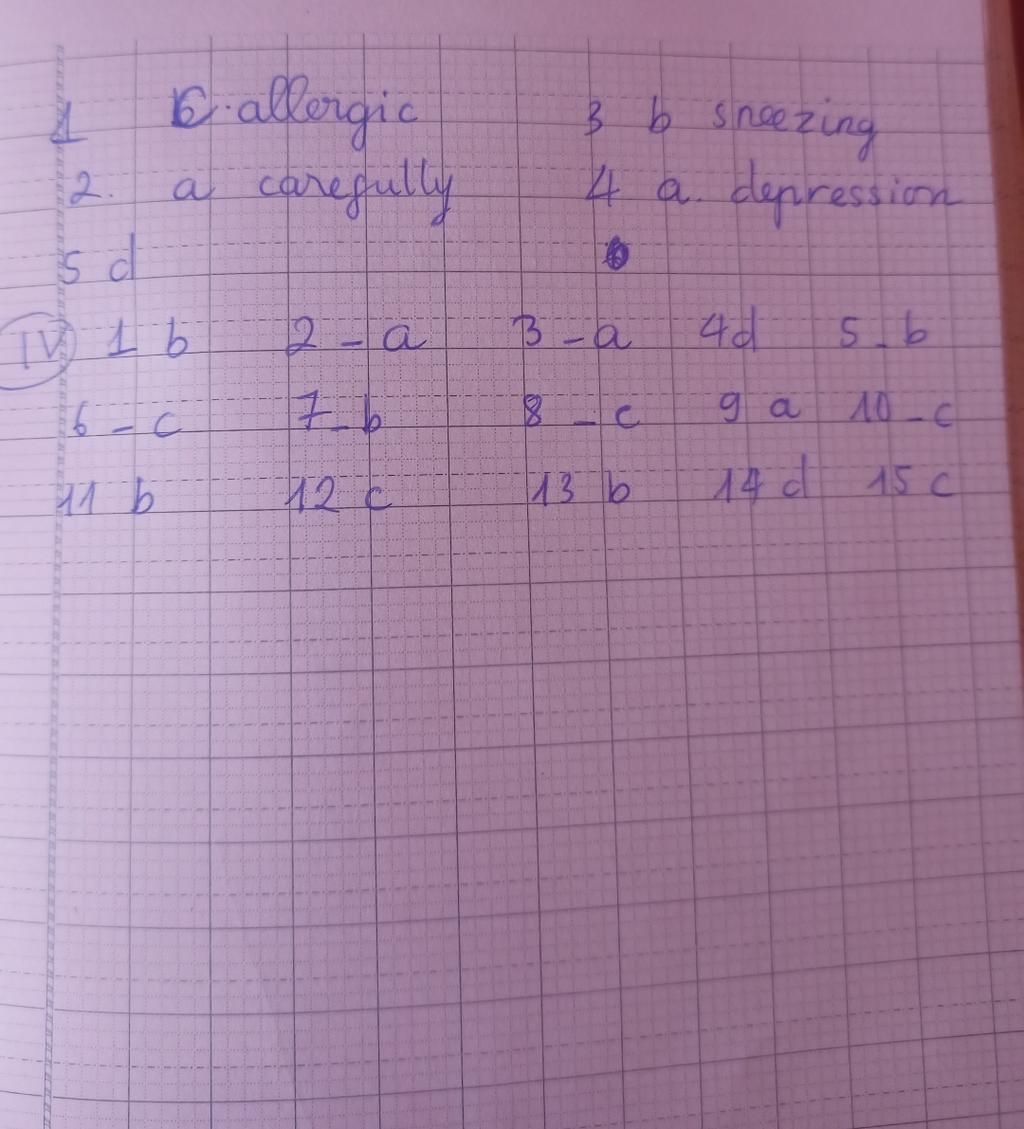 1 c. allergic 3 b sneezing
2. a carefully 4 a. depression
5 d
IV 1 b 2 - a 3 - a 4d 5 - b
6 - c 7 - b 8 - c 9 a 10 - c
11 b 12 c 13 b 14 d 15 c